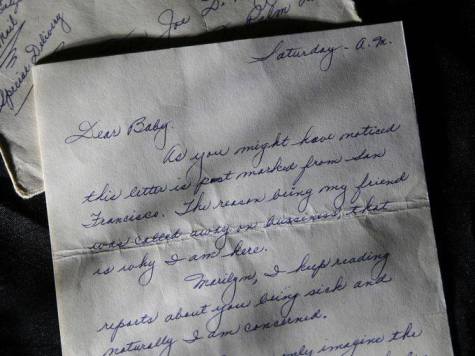 Mail
Special Delivery
Joe D.
Palm
Saturday - A.M.
Dear Baby.
As you might have noticed
this letter is post marked from San
Francisco. The reason being my friend
was called away on bussiness, that
is why I am here.
Marilyn, I keep reading
reports about you being sick and
naturally I am concerned.
only imagine the